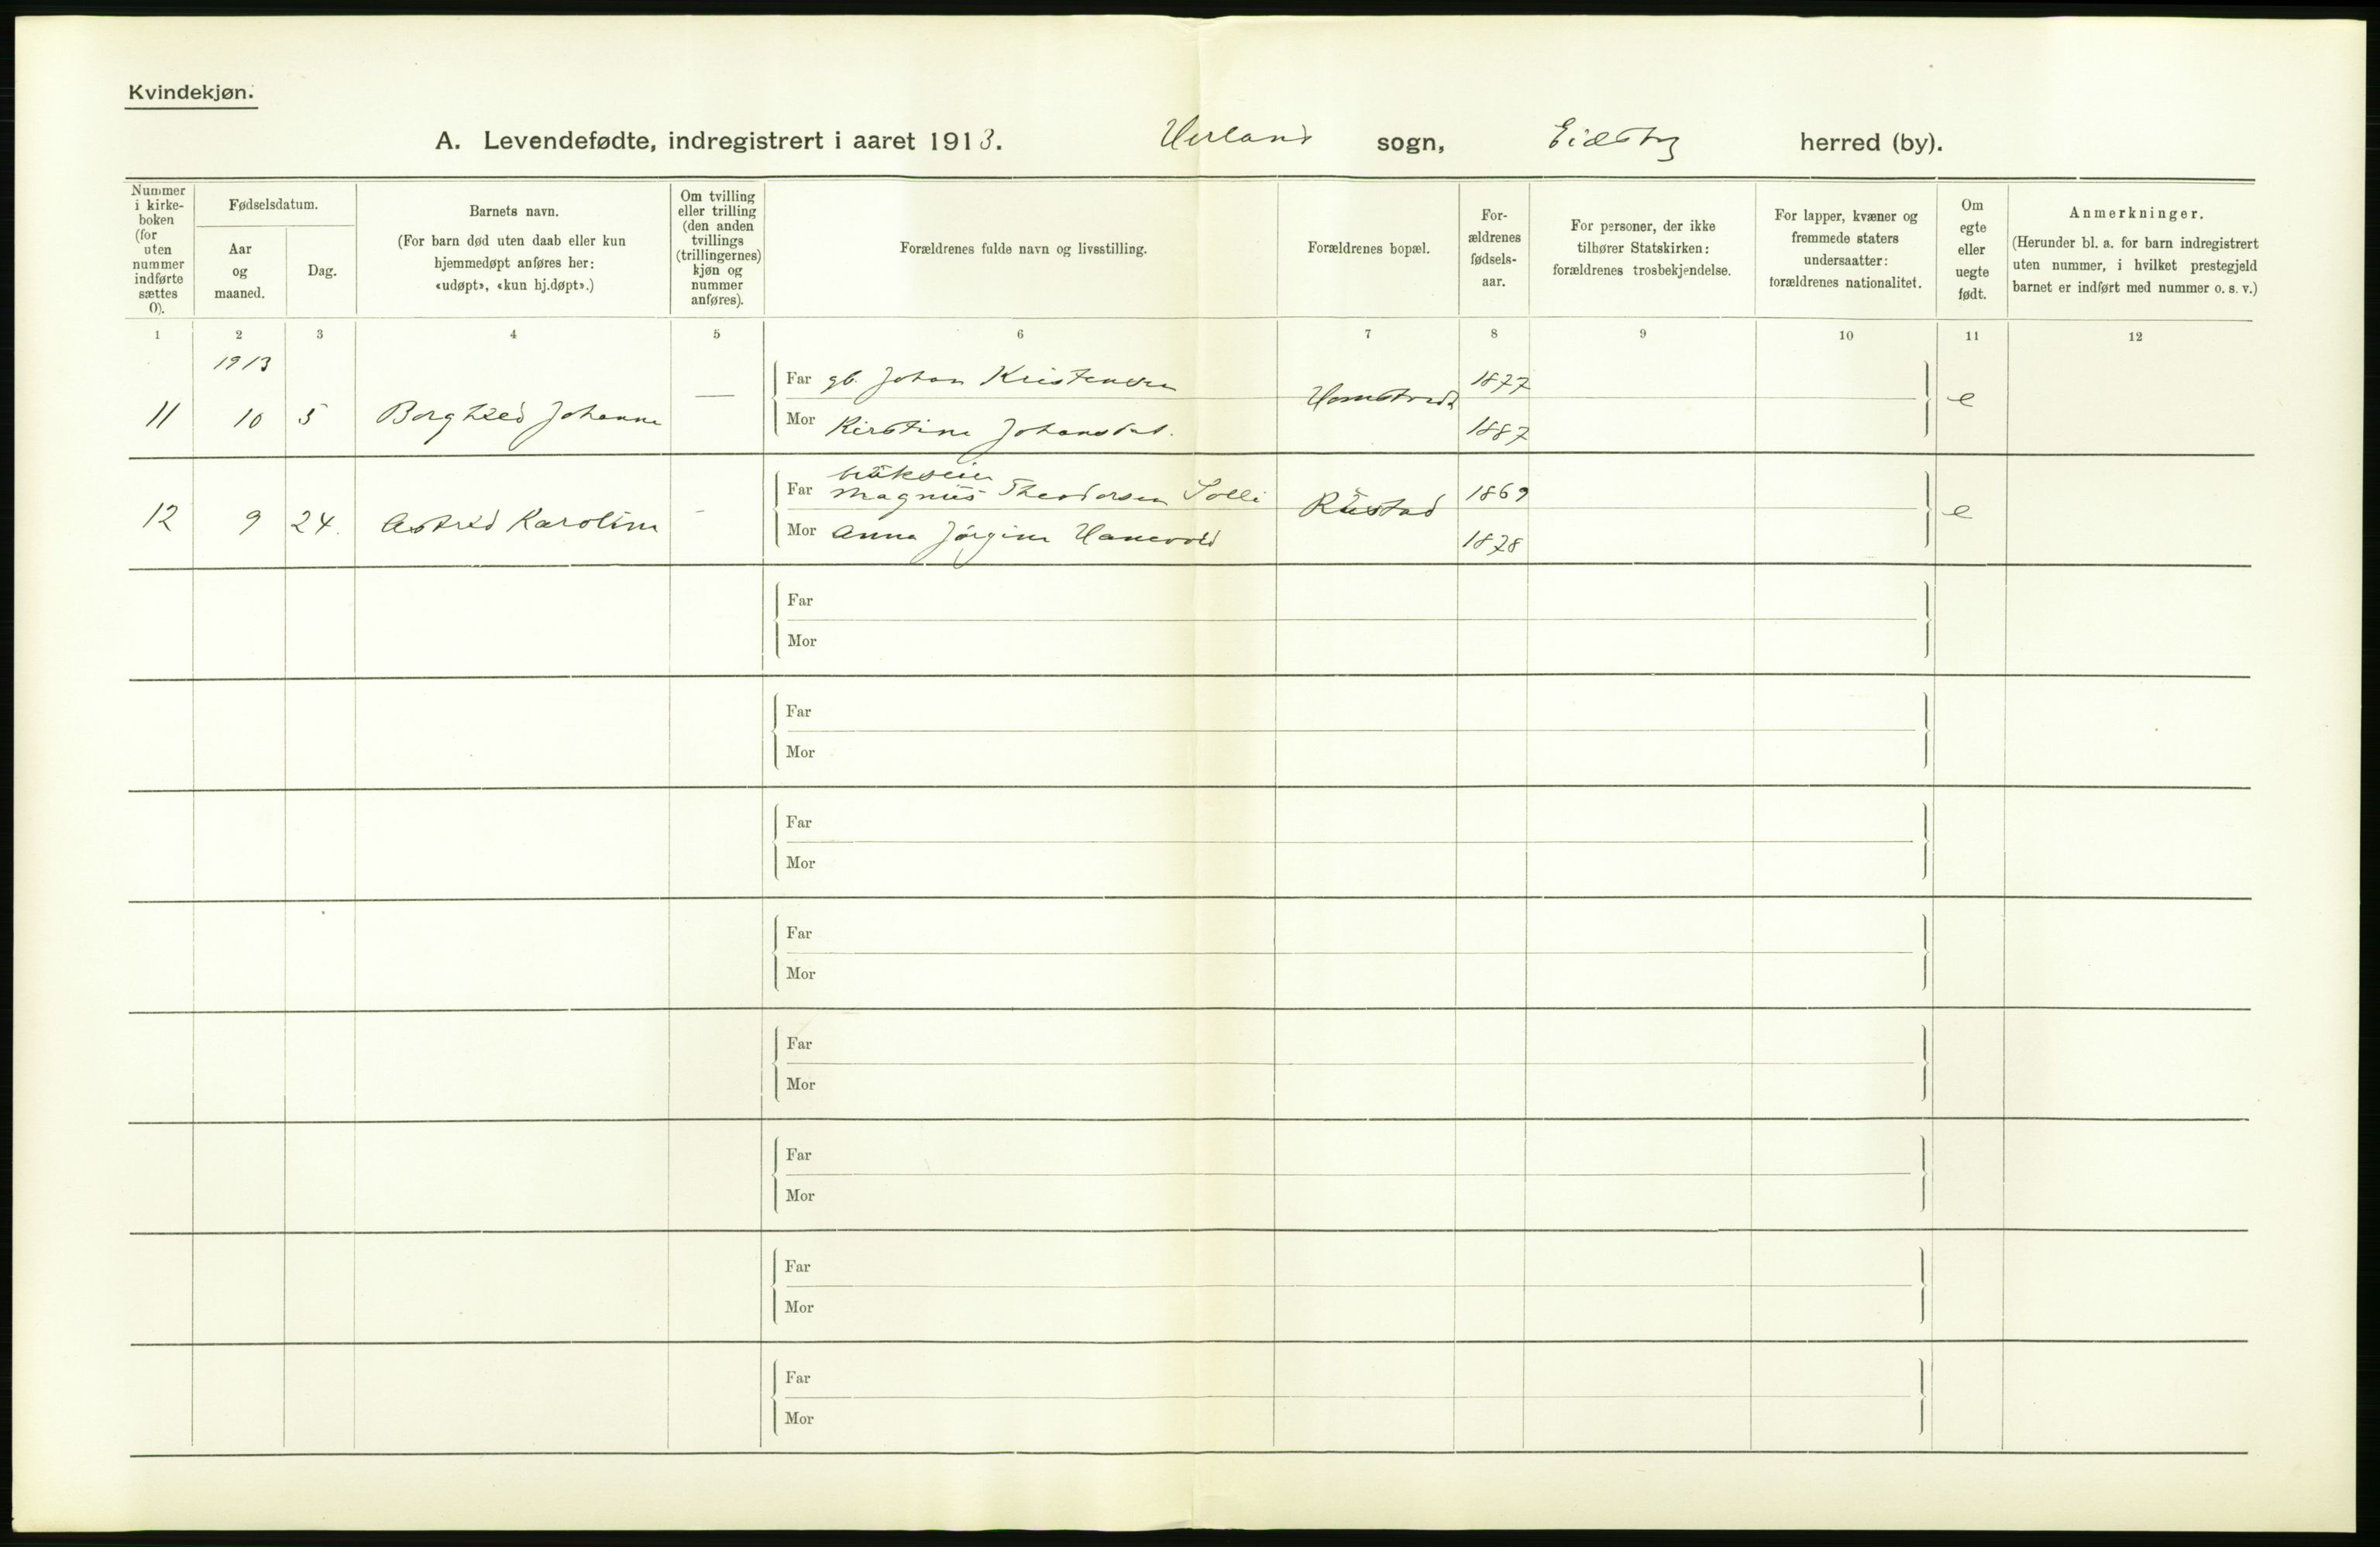 Kvindekjøn.
A. Levendefødte, indregistrert i aaret 1913. Herland sogn, Eidsbg herred (by).
Nummer i kirke-boken (for uten nummer indførte sættes 0).
Fødselsdatum.
Aar og maaned.
Dag.
Barnets navn.
(For barn død uten daab eller kun
hjemmedøpt anføres her:
«udøpt», «kun hj.døpt».)
Om tvilling
eller trilling
(den anden
tvillings
(trillingernes)
kjøn og
nummer
anføres).
Forældrenes fulde navn og livsstilling.
Forældrenes bopæl.
For-
ældrenes
fødsels-
aar.
For personer, der ikke
tilhører Statskirken:
forældrenes trosbekjendelse.
For lapper, kvæner og
fremmede staters
undersaatter:
forældrenes nationalitet.
Om
egte
eller
uegte
født.
Anmerkninger.
(Herunder bl. a. for barn indregistrert
uten nummer, i hvilket prestegjeld
barnet er indført med nummer o. s. v.)
1 2 3 4 5 6 7 8 9 10 11 12
1913
11 10 5 Borghild Johanne — Far gb. Johan Kristensen 1877 e
Mor Kirstine Johansdat. 1887
12 9 24. Astrid Karoline - Far brukseier
Magnus Theodorsen Solli Rustad 1869 e
Mor Anna Jørgine Hanevold 1878
Far
Mor
Far
Mor
Far
Mor
Far
Mor
Far
Mor
Far
Mor
Far
Mor
Far
Mor